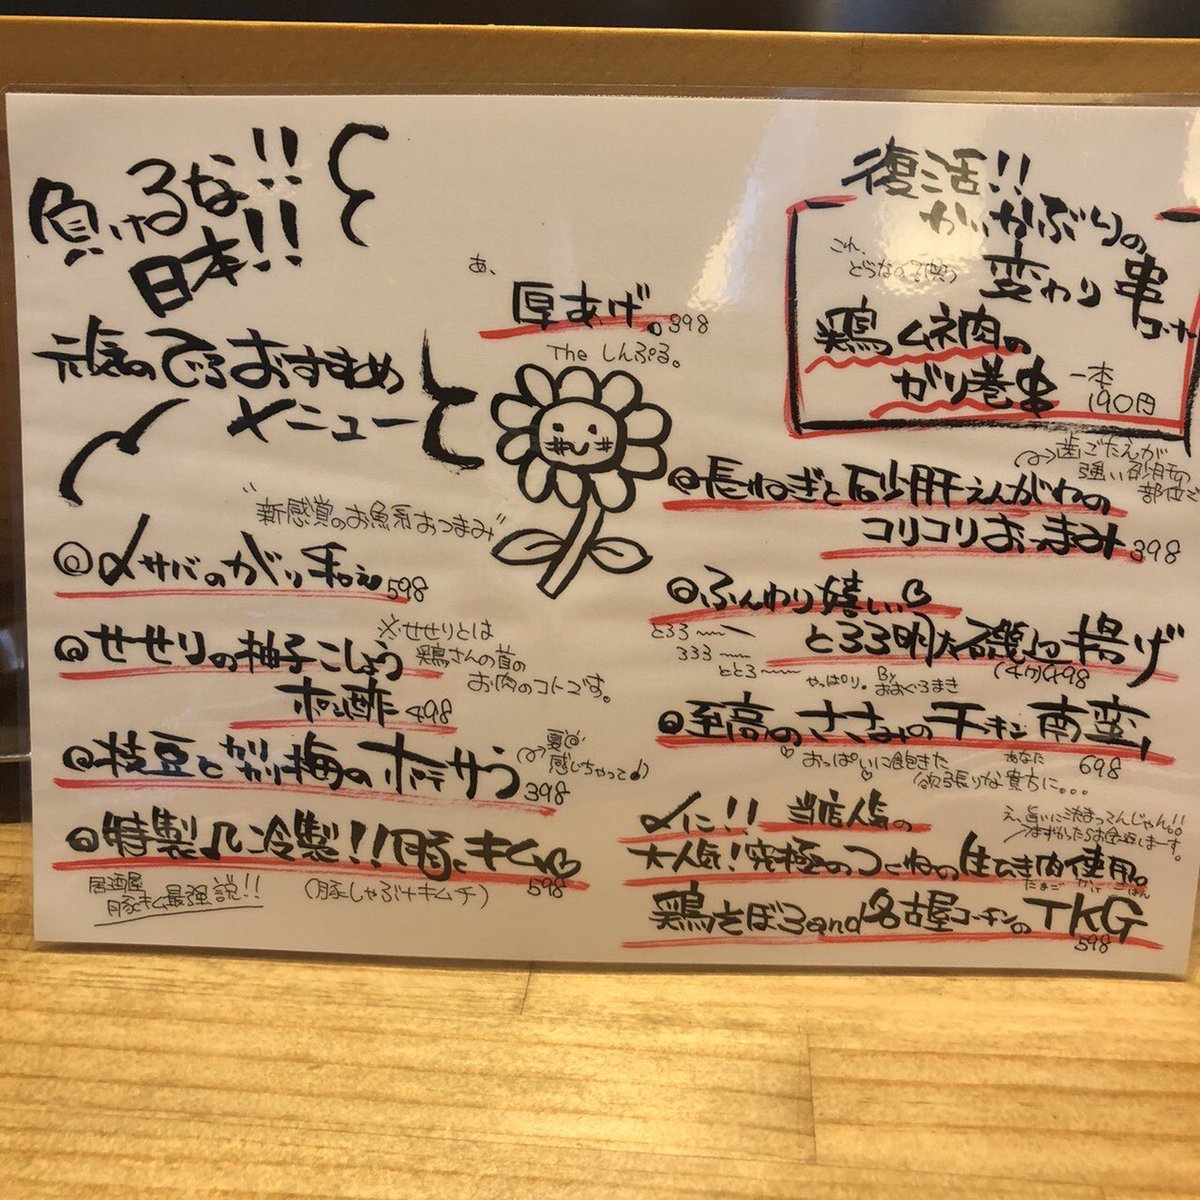 負けるな!!
日本!!
元気のでるおすすめ
メニュー
"新感覚のお魚系おつまみ"
◎〆サバのがり和え 598
◎せせりの柚子こしょう
ポン酢 498
※せせりとは
鶏さんの首の
お肉のコトです。
◎枝豆とガリ梅のポテサラ 398
夏を
感じちゃって♪
◎特製♫冷製!!豚とキム♡ 598
居酒屋
豚キム最強説!!
(豚しゃぶ+キムチ)
あ、
厚あげ。398
The しんぷる。
復活!!
がぶりの
変わり串
コーナー
これ、
鶏ムネ肉の
ガリ巻串
一本
190円
◎長ねぎと砂肝えんがわの
コリコリおつまみ 398
歯ごたえが
強い砂肝の
部位で
◎ふんわり嬉しい♡
と33明太磯辺揚げ
(4コ)498
と33〜
333〜
とと3〜
やっぱり。
By
おおぐろまき
◎至高のささみのチキン南蛮♪
698
♡おっぱいに飽きた
欲張りな貴方に...
あなた
〆に!! 当店人気の
え、旨いに決まってんじゃん。
まずかったらお金返しまーす。
大人気!究極のつくねの生ひき肉使用。
鶏そぼろand名古屋コーチンのTKG
たまご かけ ごはん
598